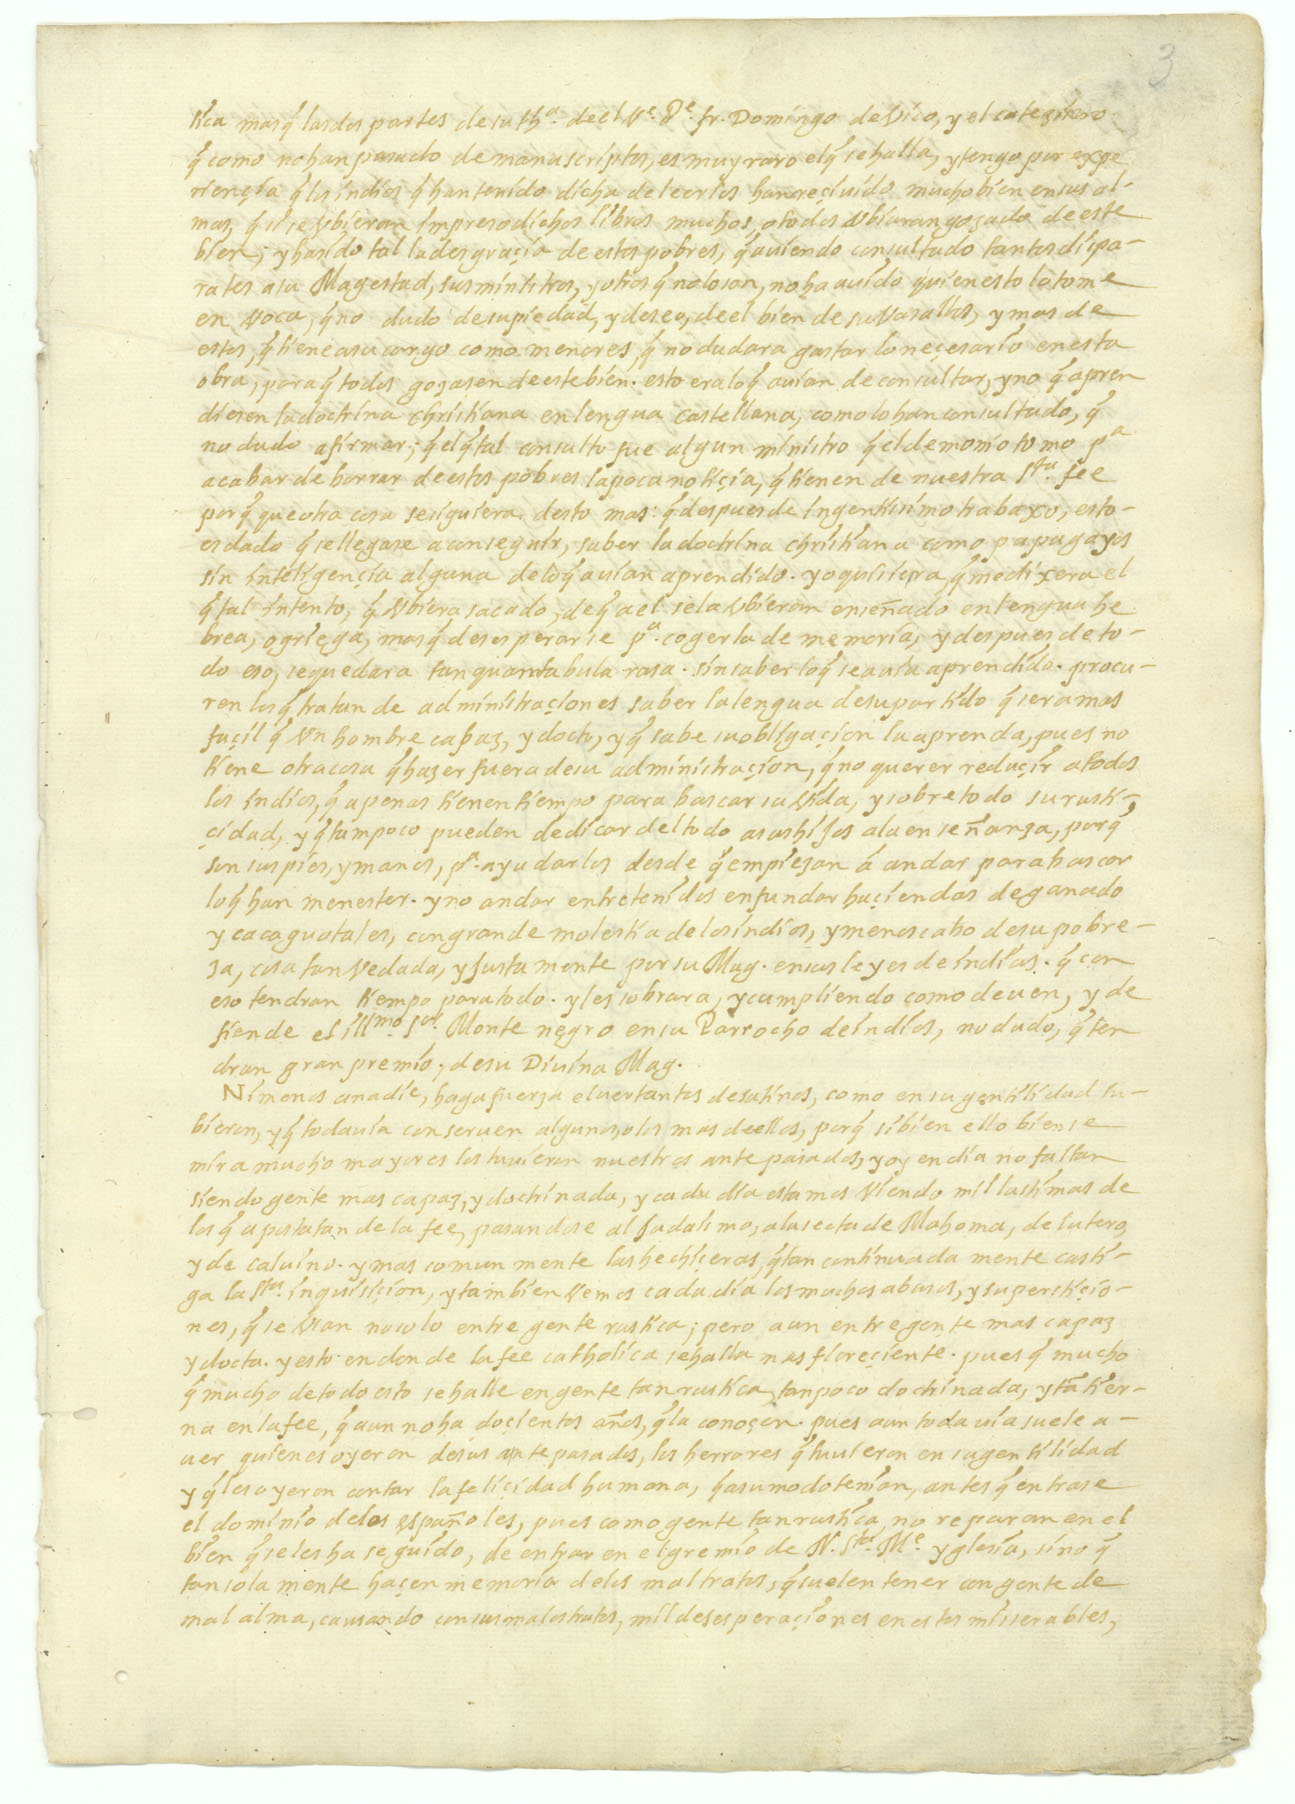 3
tica mas q̃ las dos partes de su thª. de el Vᵉ. Pᵉ. fr. Domingo de Vico, y el catezismo
q̃ como no han pasado de manuscriptos, es muy raro el q̃ se halla, y tengo por expe
riençia q̃ los indios q̃ han tenido dicha de leerlos han reçiuido mucho bien en sus al-
mas, q̃ si se vbieran impreso dichos libros muchos, o todos vbieran gozado de este
bien; y ha sido tal la desgraçia de estos pobres, q̃ auiendo consultado tantos dispa-
rates a su Magestad, sus ministros, y otros q̃ no lo son, no ha auido quien esto lo tome
en voca, q̃ no dudo de su piedad, y deseo, de el bien de su vasallos, y mas de
estos, q̃ tiene a su cargo como menores, q̃ no dudara gastar lo neçesario en esta
obra, para q̃ todos gozasen de este bien. esto era lo q̃ auian de consultar, y no q̃ apren
diesen la doctrina christiana en lengua castellana, como lo han consultado, q̃
no dudo afirmar; q̃ el q̃ tal consulto fue algun ministro q̃ el demonio tomo pª
acabar de borrar de estos pobres la poca notiçia, q̃ tienen de nuestra Sᵗᵃ. fee
porq̃ que otra cosa se siguiera. desto mas: q̃ despues de ingentisimo trabaxo, esto-
es dado q̃ se llegase a conseguir, saber la doctrina christiana como papagayos
sin inteligençia alguna de lo q̃ auian aprendido. yo quisiera q̃ me dixera el
q̃ tal intento, q̃ vbiera sacado, de q̃ a el se la vbieran enseñado en lengua he
brea, o griega, mas q̃ desesperarse pª. cogerla de memoria, y despues de to-
do eso, se quedara tanquam tabula rasa. sin saber lo q̃ se auia aprendido. procu-
ren los q̃ tratan de administraçiones saber la lengua de su partido q̃ sera mas
façil q̃ vn hombre capaz, y docto, y q̃ sabe su obligaçion la aprenda, pues no
tiene otra cosa q̃ hazer fuera de su administraçion, q̃ no querer reduçir a todos
los indios, q̃ apenas tienen tiempo para buscar su vida, y sobre todo su rusti-
çidad, y q̃ tampoco pueden dedicar del todo a sus hijos a la enseñanza, porq̃
son sus pies, y manos, pª. ayudarlos desde q̃ empiezan â andar para buscar
lo q̃ han menester. y no andar entretenidos en fundar haçiendas de ganado
y cacaguatales, con grande molestia de los indios, y menoscabo de su pobre-
za, cosa tan vedada, y justamente por su Mag. en sus leyes de indias. q̃ con
eso tendran tiempo para todo. y les sobrara, y cumpliendo como deuen, y de
fiende el illᵐᵒ Sᵒʳ. Monte negro en su Parrocho de indios, no dudo, q̃ ten
dran gran premio, de su Diuina Mag.
Ni menos a nadie, haga fuerza el ver tantos desatinos, como en su gentilidad tu-
bieron, y q̃ todauia conseruen algunos, o los mas de ellos, porq̃ si bien ello bien se
mira mucho mayores los tuuieron nuestros ante pasados, y oy en dia no faltan
siendo gente mas capaz, y doctrinada, y cada dia estamos viendo mil lastimas de
los q̃ apostatan de la fee, pasandose al judaismo, a la secta de Mahoma, de lutero,
y de caluino. y mas comun mente las hechiçeras, q̃ tan continuada mente casti-
ga la Sᵗᵃ. inquisiçion, y tambien vemos cada dia los muchos abusos, y superstiçio-
nes, q̃ se vsan no solo entre gente rustica; pero aun entre gente mas capaz
y docta. y esto en donde la fee catholica se halla mas floreçiente. pues q̃ mucho
q̃ mucho de todo esto se halle en gente tan rustica, tan poco doctrinada, y tã tier-
na en la fee, q̃ aun no ha doçientos años, q̃ la conoçen. pues aun toda uia suele a-
uer quienes oyeron de sus ante pasados, los herrores q̃ tuuieron en su gentilidad
y q̃ les oyeron contar la feliçidad humana, q̃ a su modo tenian, antes q̃ entrase
el dominio de los españoles, pues como gente tan rustica no reparan en el
bien q̃ se les ha seguido, de entrar en el gremio de N. Sᵗᵃ. Mᵉ. yglesia, sino q̃
tan sola mente haçen memoria de los mal tratos, q̃ suelen tener con gente de
mal alma, causando con sus malos tratos, mil desesperaçiones en estos miserables,